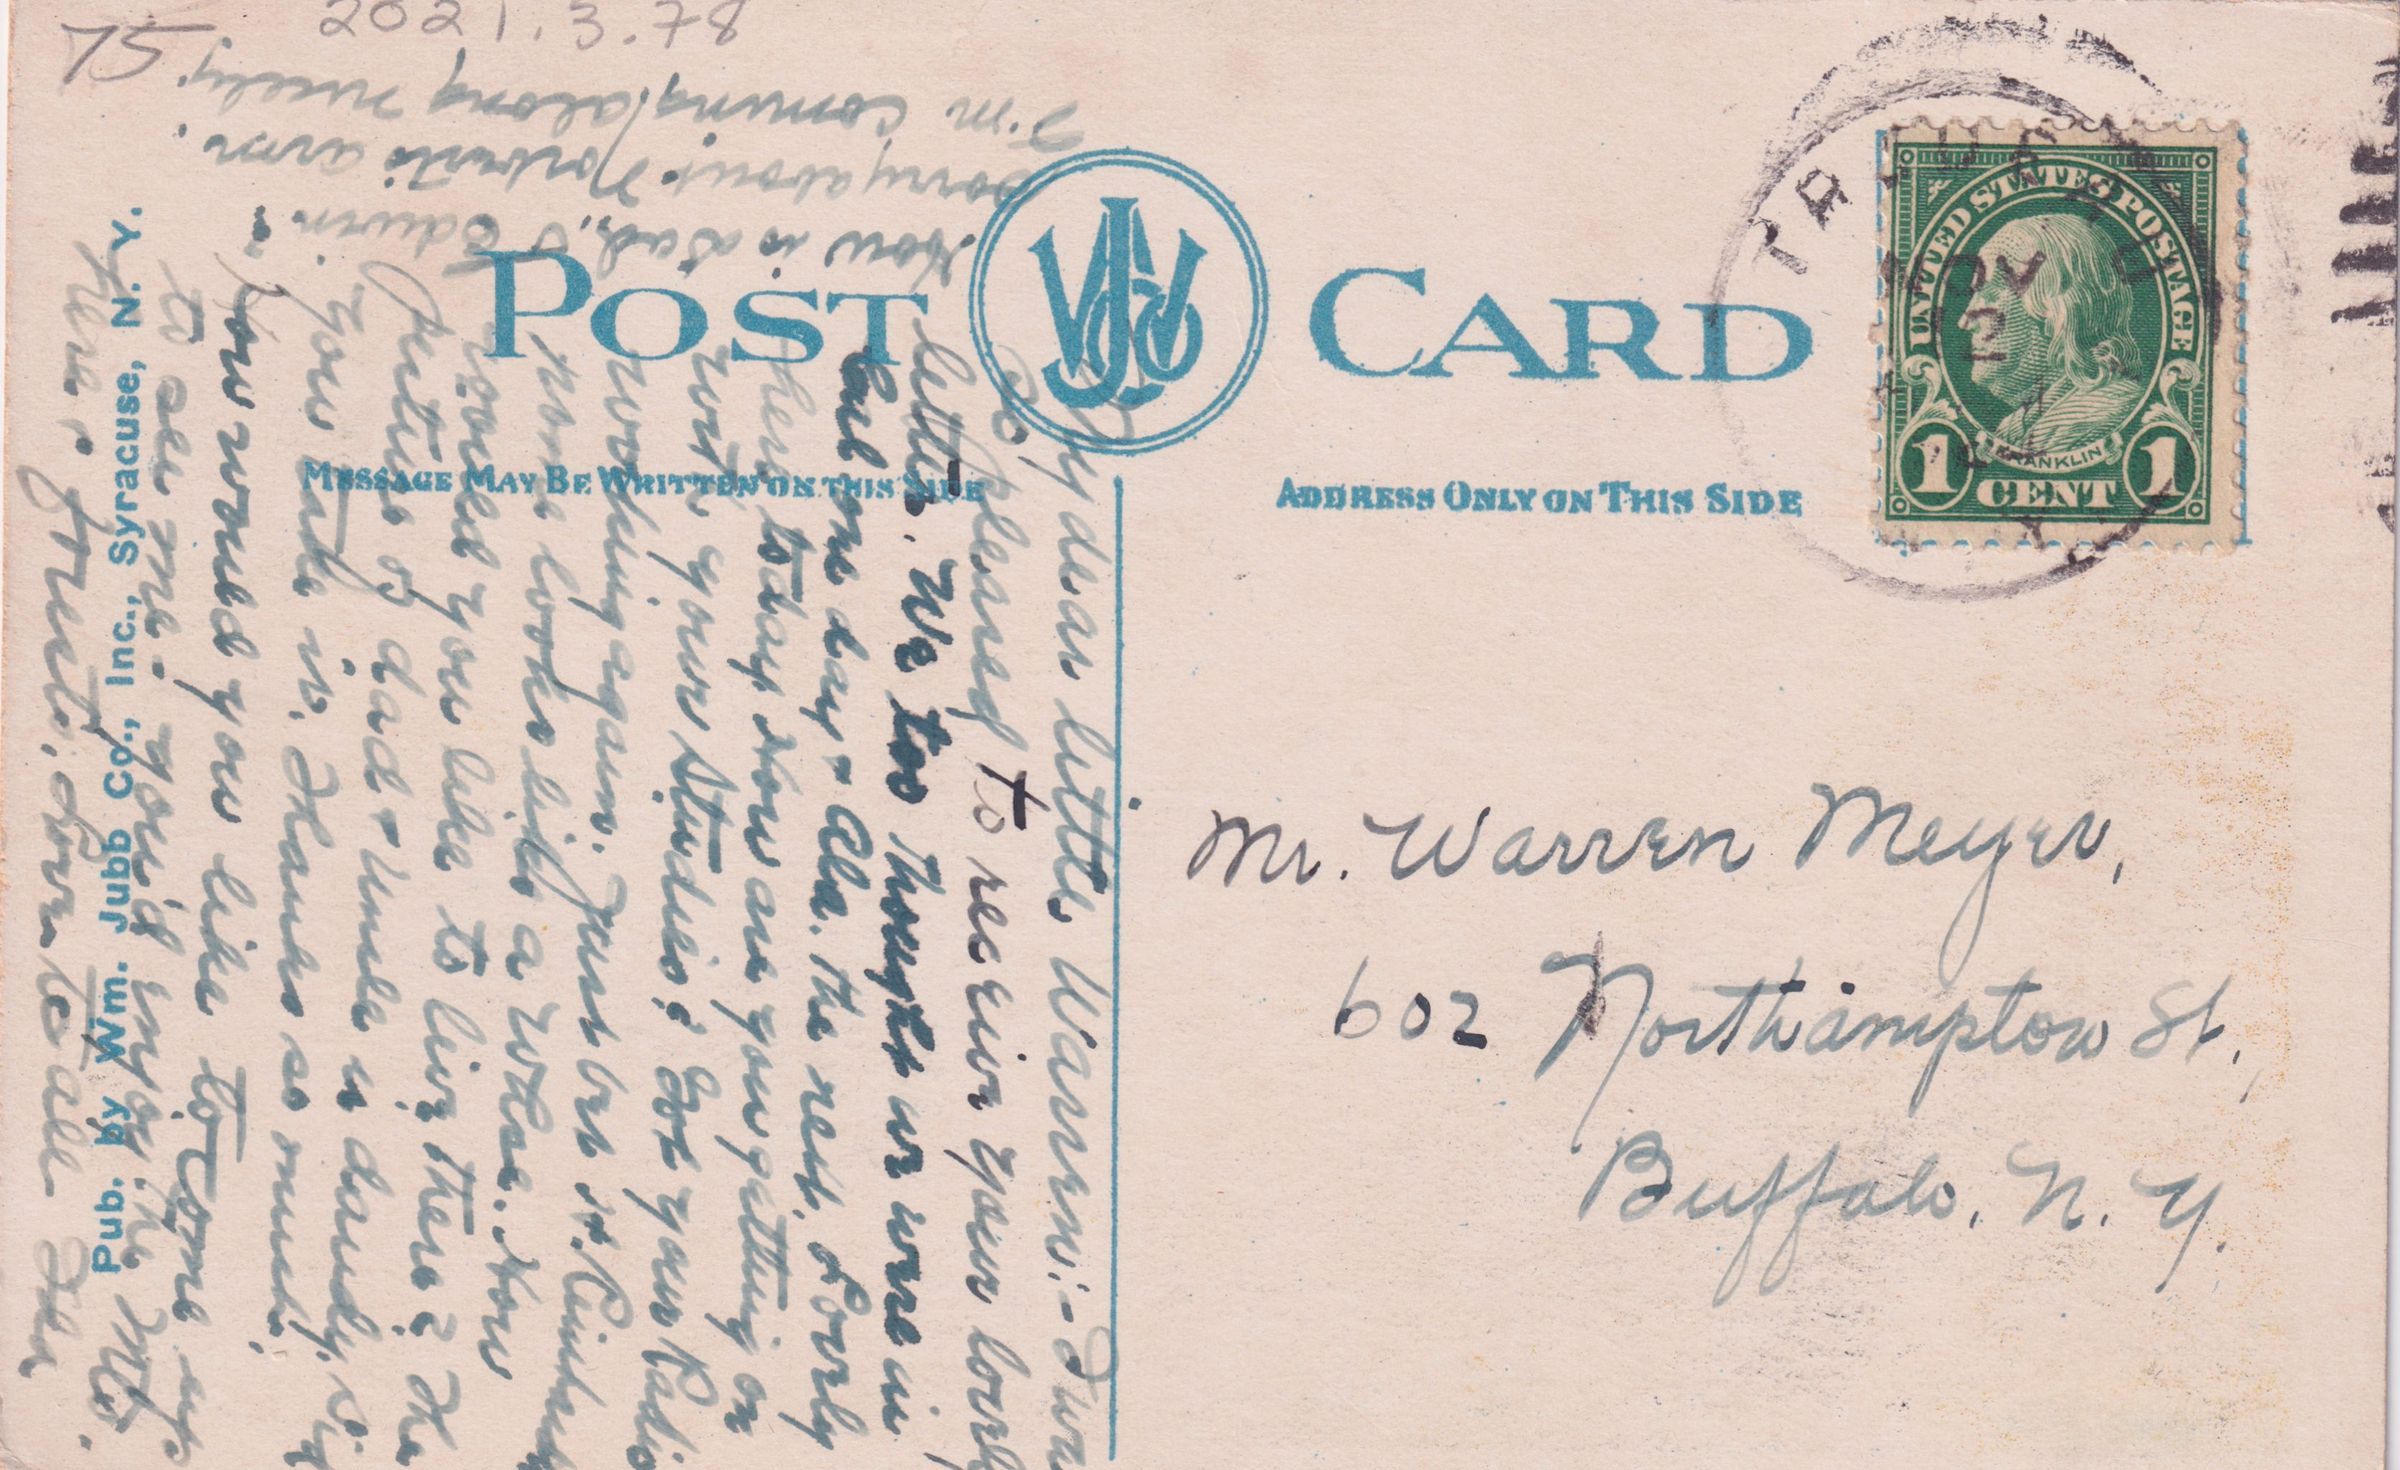 75
2021.3.78
POST CARD
WJCo
MESSAGE MAY BE WRITTEN ON THIS SIDE
ADDRESS ONLY ON THIS SIDE
UNITED STATES POSTAGE
FRANKLIN
1 CENT 1
NOV
2
Mr. Warren Meyer,
602 Northampton St,
Buffalo, N. Y.
Pub. by Wm. Jubb Co., Inc., Syracuse, N. Y.
My dear little Warren:- I was
so pleased to receive your lovely
letter. We too thought we were in
one day & Ala. the next. Lovely
here today. How are you getting on
with your studies? Got your Radio
working again. Just bet it.
Home looks like a
would you like to live there? The
picture of dad & Uncle is dandy,
you take in. Thanks so much.
How would you like to come up
to see me. you'd enjoy the Mts.
here. Love to all
How is Dad, & Edwin.
Sorry about Norbert's arm.
I'm coming along nicely.